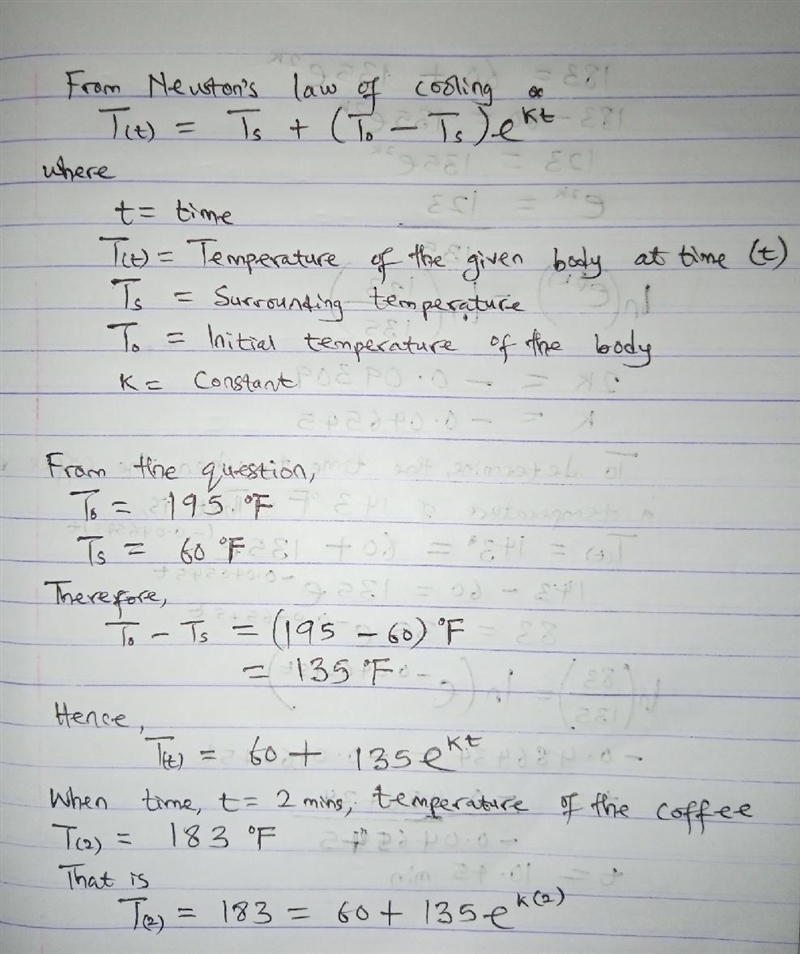 From Newton's law of cooling
T(t) = Ts + (To - Ts)e^kt
where
t = time
T(t) = Temperature of the given body at time (t)
Ts = Surrounding temperature
To = Initial temperature of the body
K = Constant
From the question,
To = 195 °F
Ts = 60 °F
Therefore,
To - Ts = (195 - 60) °F
= 135 °F
Hence,
T(t) = 60 + 135e^kt
When time, t = 2 mins, temperature of the coffee
T(2) = 183 °F
That is
T(2) = 183 = 60 + 135e^k(2)